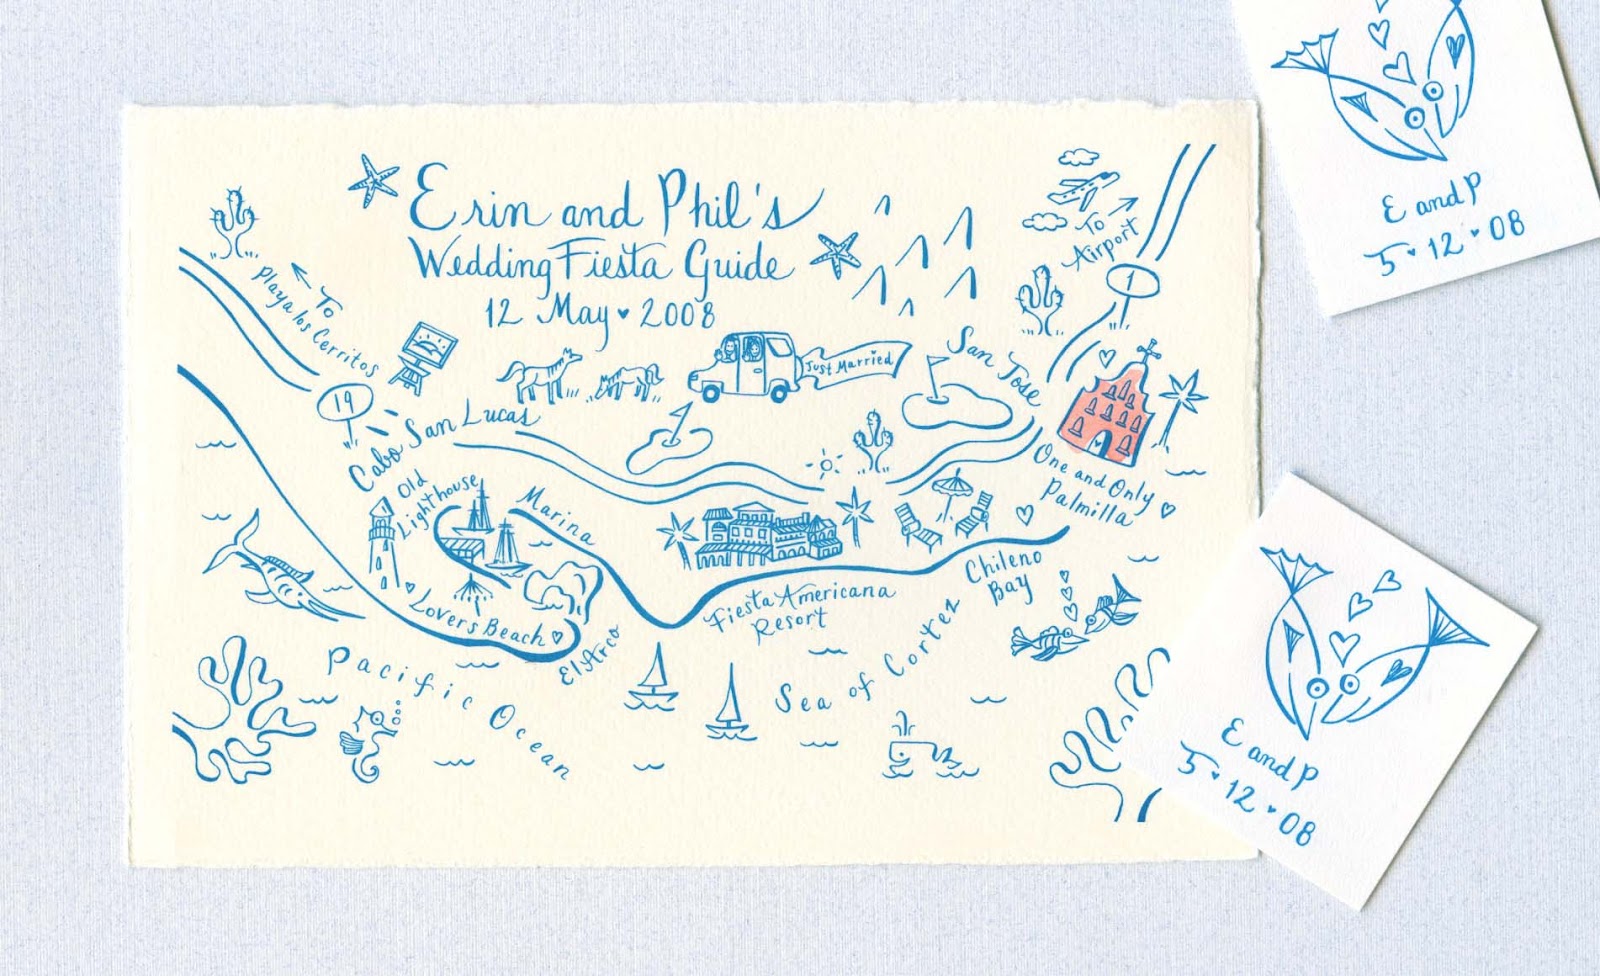 Erin and Phil's
Wedding Fiesta Guide
12 May ♥ 2008
To
Playa los Cerritos
To
Airport
1
19
Just Married
San Jose
Cabo San Lucas
Old
Lighthouse
Marina
One and Only
Palmilla
Lovers Beach
El Arco
Fiesta Americana
Resort
Chileno
Bay
Pacific Ocean
Sea of Cortez
E and P
5 ♥ 12 ♥ 08
E and P
5 ♥ 12 ♥ 08